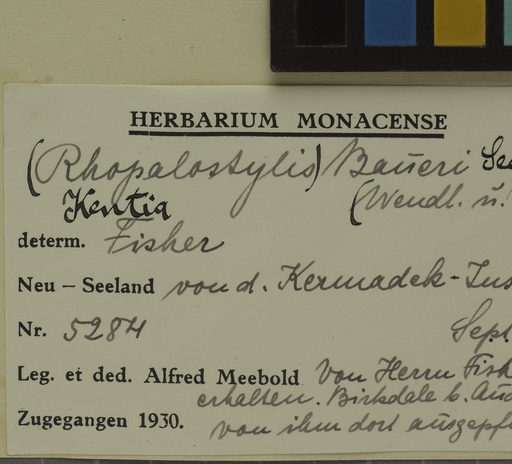 HERBARIUM MONACENSE
(Rhopalostylis) Baueri See
Kentia (Wendl. u.
determ. Fisher
Neu – Seeland von d. Kermadek-Ins
Nr. 5284 Sept
Leg. et ded. Alfred Meebold Von Herrn Fish
erhalten. Birkdale b. Auc
Zugegangen 1930. von ihm dort ausgepfl